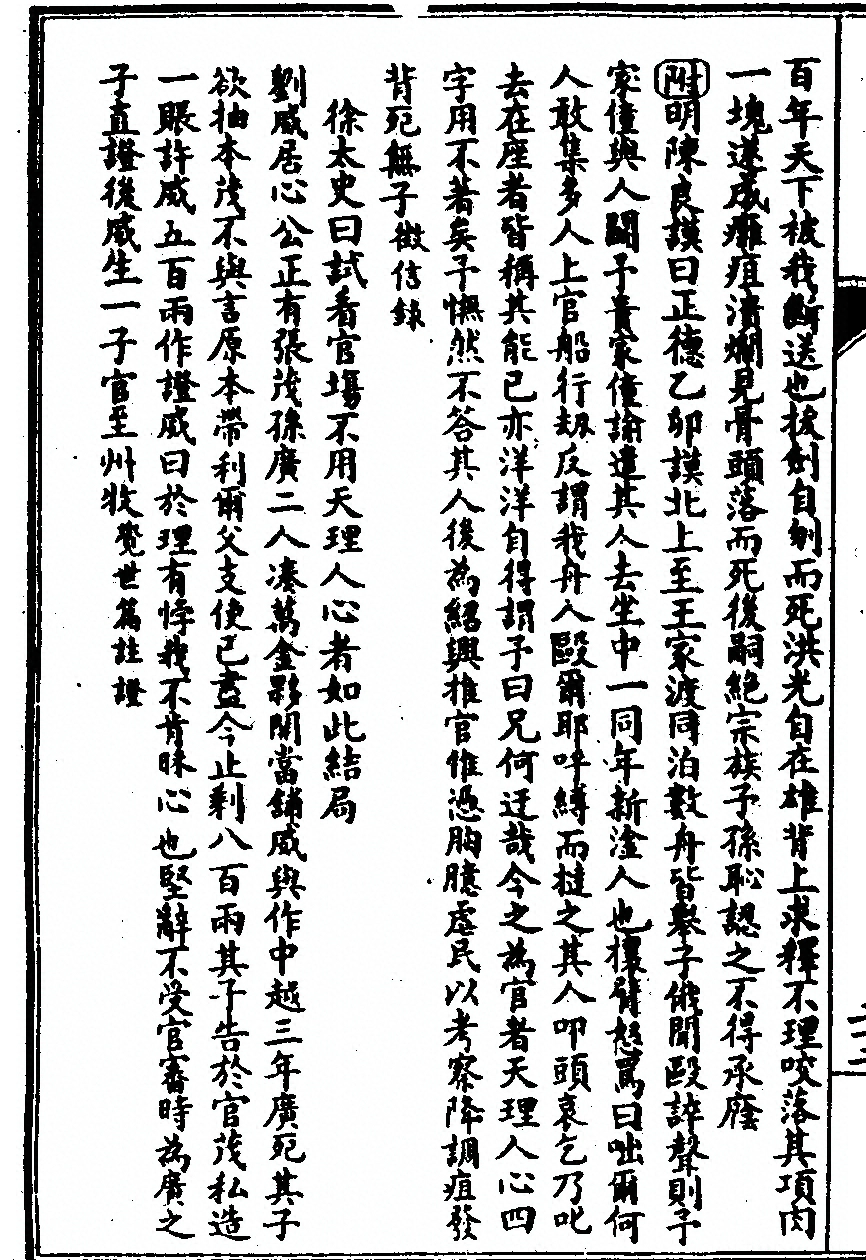 百年天下被我斷送也拔劍自刎而死洪光自在雄背上求釋不理咬落其項肉
一塊遂成癰疽潰爛見骨頭落而死後嗣絕宗族子孫恥認之不得承廕
附明陳良謨曰正德乙卯謨北上至王家渡同泊數舟皆舉子俄聞毆誶聲則予
家僮與人鬪予責家僮諭遣其人去坐中一同年新淦人也攘臂怒罵曰咄爾何
人敢集多人上官船行刼反謂我舟人毆爾耶呼縛而撻之其人叩頭哀乞乃叱
去在座者皆稱其能已亦洋洋自得謂予曰兄何迂哉今之為官者天理人心四
字用不著矣予憮然不答其人後為紹興推官惟憑胸臆虐民以考察降調疽發
背死無子徵信錄
徐太史曰試看官塲不用天理人心者如此結局
劉威居心公正有張茂孫廣二人湊萬金夥開當舖威與作中越三年廣死其子
欲抽本茂不與言原本帶利爾父支使已盡今止剩八百兩其子告於官茂私造
一賬許威五百兩作證威曰於理有悖我不肯昧心也堅辭不受官審時為廣之
子直證後威生一子官至州牧覺世篇註證